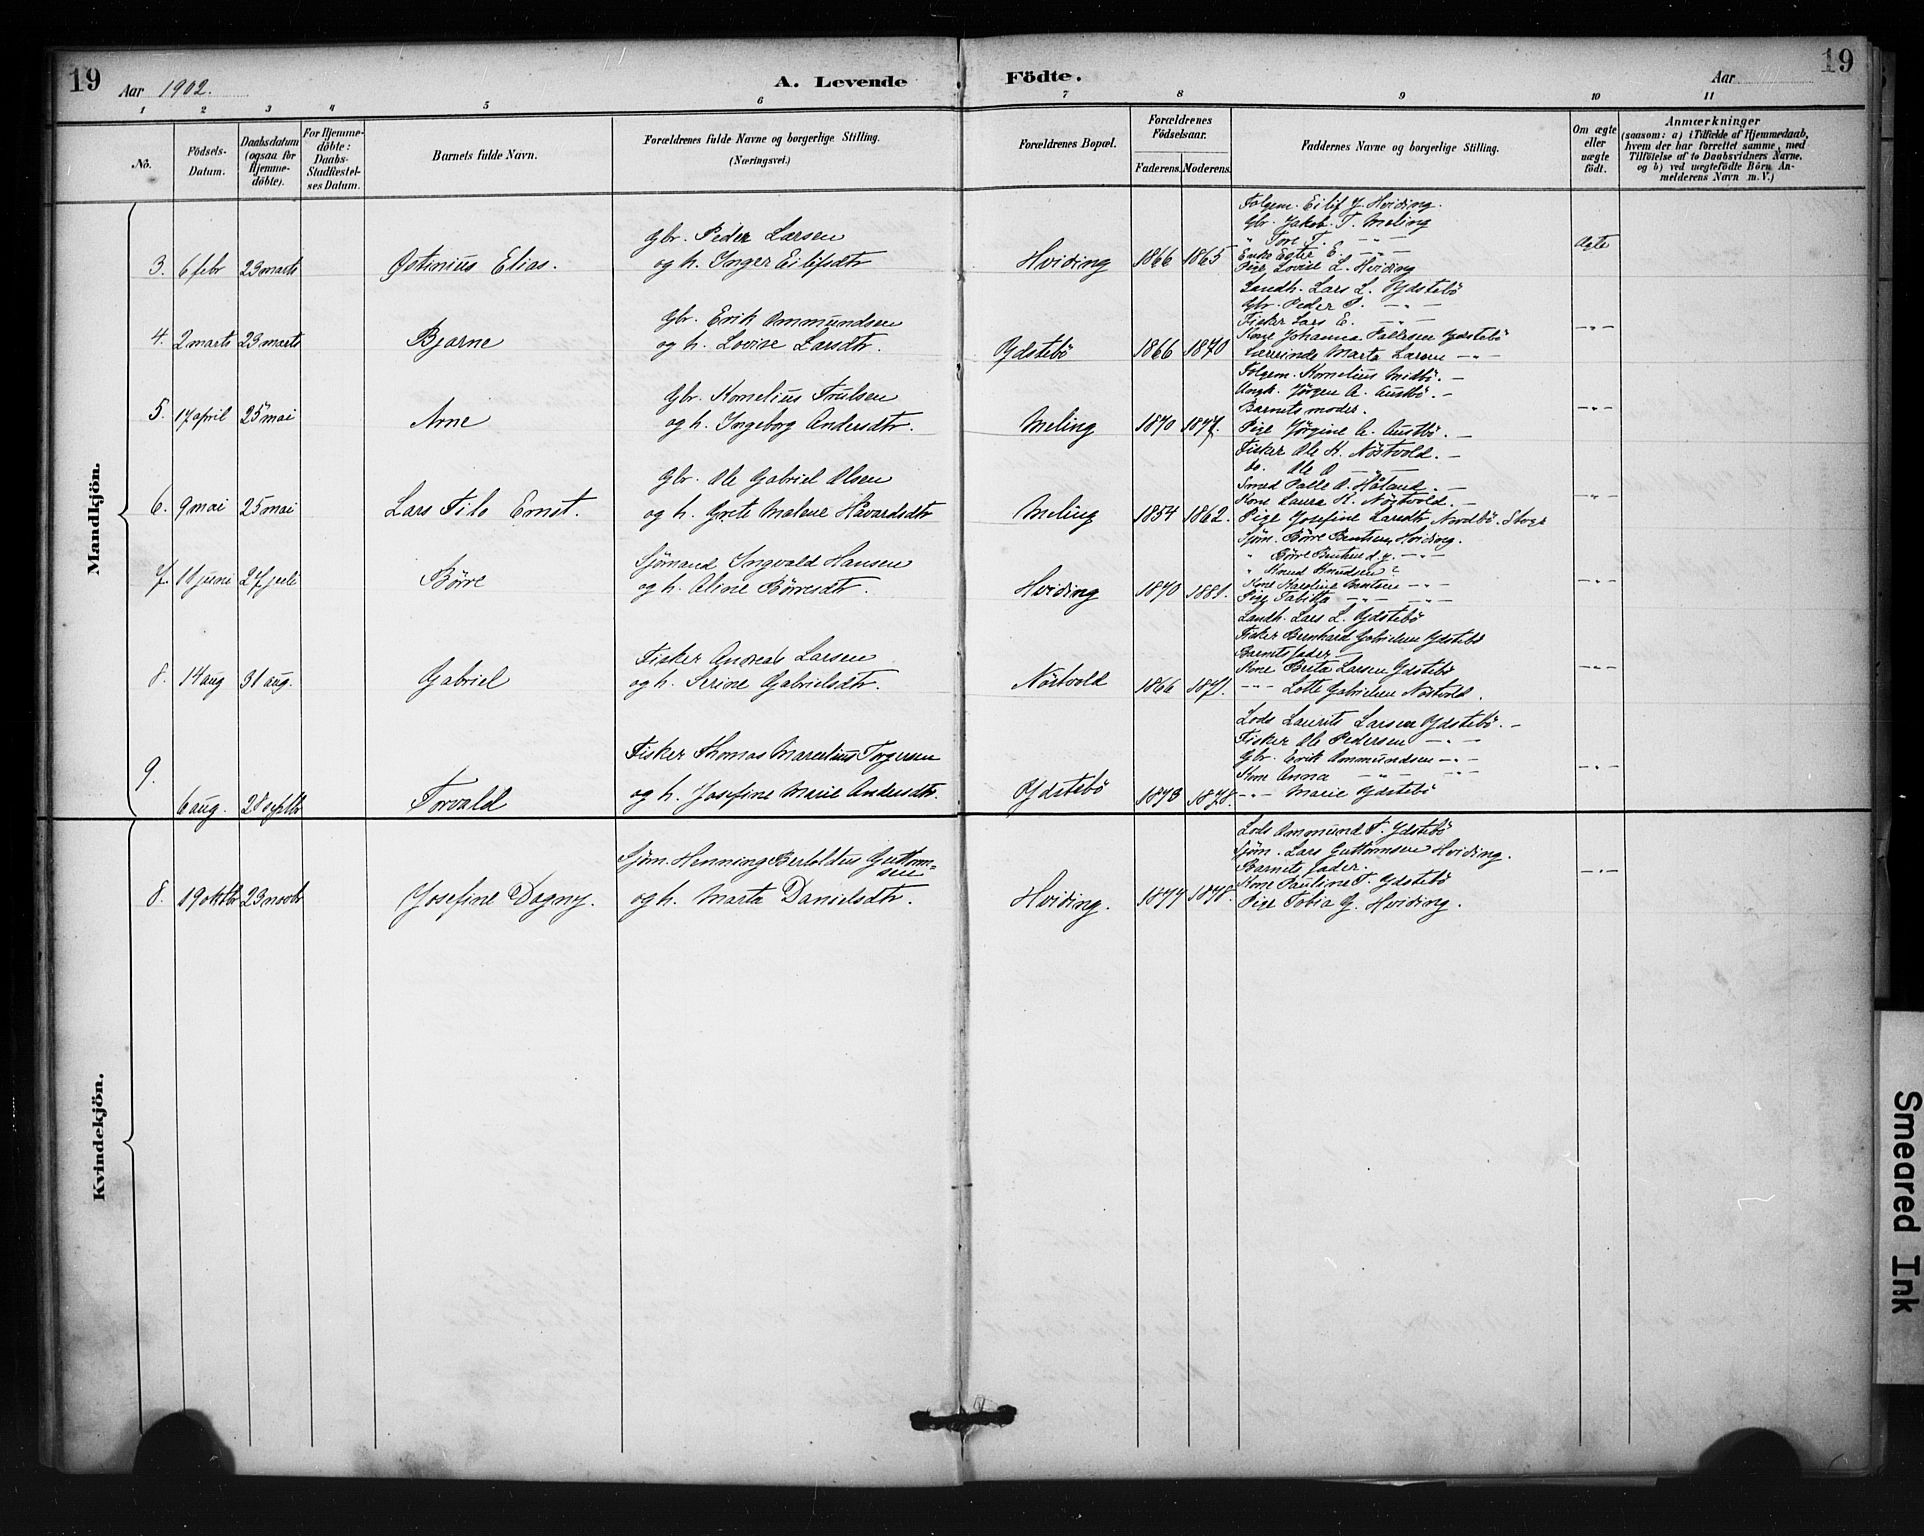 19
Aar 1902.
A. Levende
Födte.
Aar
19
1 2 3 4 5 6 7 8 9 10 11
No.
Födsels-Datum.
Daabsdatum (ogsaa for Hjemmedöbte).
For Hjemmedöbte: Daabs-Stadfestelses Datum.
Barnets fulde Navn.
Forældrenes fulde Navne og borgerlige Stilling.
(Næringsvei.)
Forældrenes Bopæl.
Forældrenes Födselsaar.
Faderens. Moderens.
Faddernes Navne og borgerlige Stilling.
Om ægte eller uægte födt.
Anmærkninger
(saasom: a) i Tilfælde af Hjemmedaab, hvem der har forrettet samme, med Tilföielse af to Daabsvidners Navne, og b) ved uægtefödte Börn Anmelderens Navn m. V.)
Mandkjön.
3. 6 febr 23 marts
Ostinius Elias.
Gbr. Peder Larsen
og h. Inger Eilifsdtr
Hviding 1866 1865
Folgem. Eilif J. Hviding.
Gbr. Jakob T. Meling
" Tore T. - " -
Enke Ester E. - " -
Pige Lovise L. Hviding
Ægte
4. 2 marts 23 marts
Bjarne
Gbr. Erik Ommundsen
og h. Lovise Larsdtr.
Ydstebö 1866 1870
Landh. Lars L. Ydstebö
Gbr. Peder P. - " -
Fisker Lars E. - " -
Kone Johanna Pallesen Ydstebö
Lærerinde Marta Larsen - " -
- " -
5. 17 april 25 mai
Arne
Gbr. Kornelius Trulsen
og h. Ingeborg Andersdtr.
Meling 1870 1877.
Folgem. Kornelius Midbö. -
Ungk. Jörgen A. Austbö. -
Barnets moder.
Pige Jörgine A. Austbö. -
- " -
6. 9 mai 25 mai
Lars Filo Ernst.
Gbr. Ole Gabriel Olsen
og h. Grete Malene Håvardsdtr
Meling 1854 1862.
Fisker Ole K. Nöstvold. -
do. Ole O - " -
Smed Palle O. Håland. -
Kone Laura K. Nöstvold. -
Pige Josefine Larsdtr Nordbö.
- " -
7. 18 juni 27 juli
Börre
Sjömand Ingvald Hansen
og h. Oline Börresdtr.
Hviding 1870 1881.
Sjöm. Börre Bentsen, Hviding.
" Börre Bentsen d.y. - " -
" Knud Knudsen
Kone Karoline Bentsen - " -
Pige Tabitta - " - - " -
- " -
8. 14 aug 31 aug.
Gabriel
Fisker Andreas Larsen
og h. Serine Gabrielsdtr.
Nöstvold 1866 1871.
Landh. Lars L. Ydstebö
Fisker Bernhard Gabrielsen Ydstebö
Barnets fader -
Kone Berta Larsen Ydstebö
- " - Lotte Gabrielsen Nöstvold.
- " -
9. 6 aug. 28 septbr
Torvald
Fisker Thomas Marcelius Torgersen
og h. Josefine Marie Andersdtr.
Ydstebö 1873 1878.
Lods Laurits Larsen Ydstebö. -
Fisker Ole Pedersen - " -
Gbr. Erik Ommundsen - " -
Kone Anna - " - - " -
- " - Marie Ydstebö
- " -
Kvindekjön.
8. 19 oktbr 23 novbr
Josefine Dagny.
Sjöm. Henning Bertoldus Guttorm=
sen
og h. Marta Danielsdtr.
Hviding. 1877 1878.
Lods Ommund T. Ydstebö
Sjöm. Lars Guttormsen Hviding.
Barnets fader.
Kone Pauline T. Ydstebö
Pige Tobia G. Hviding.
- " -
Smeared Ink